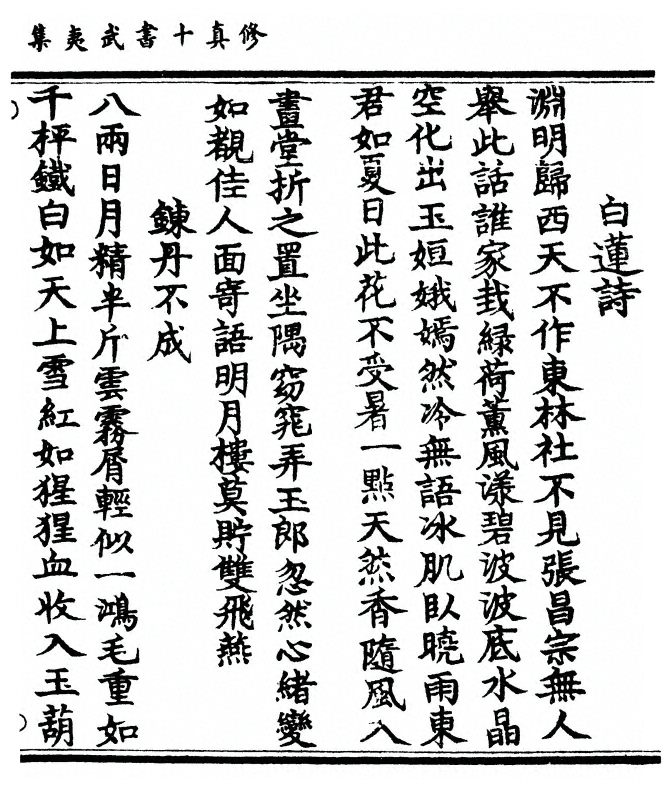 修真十書武夷集
白蓮詩
淵明歸西天不作東林社不見張昌宗無人
舉此話誰家栽緑荷薰風漾碧波波底水晶
空化出玉姮娥嫣然冷無語冰肌臥曉雨東
君如夏日此花不受暑一點天然香隨風入
畫堂折之置坐隅窈窕弄玉郎忽然心緒變
如覩佳人面寄語明月樓莫貯雙飛燕
鍊丹不成
八兩日月精半斤雲霧屑輕似一鴻毛重如
千枰鐵白如天上雪紅如猩猩血收入玉葫